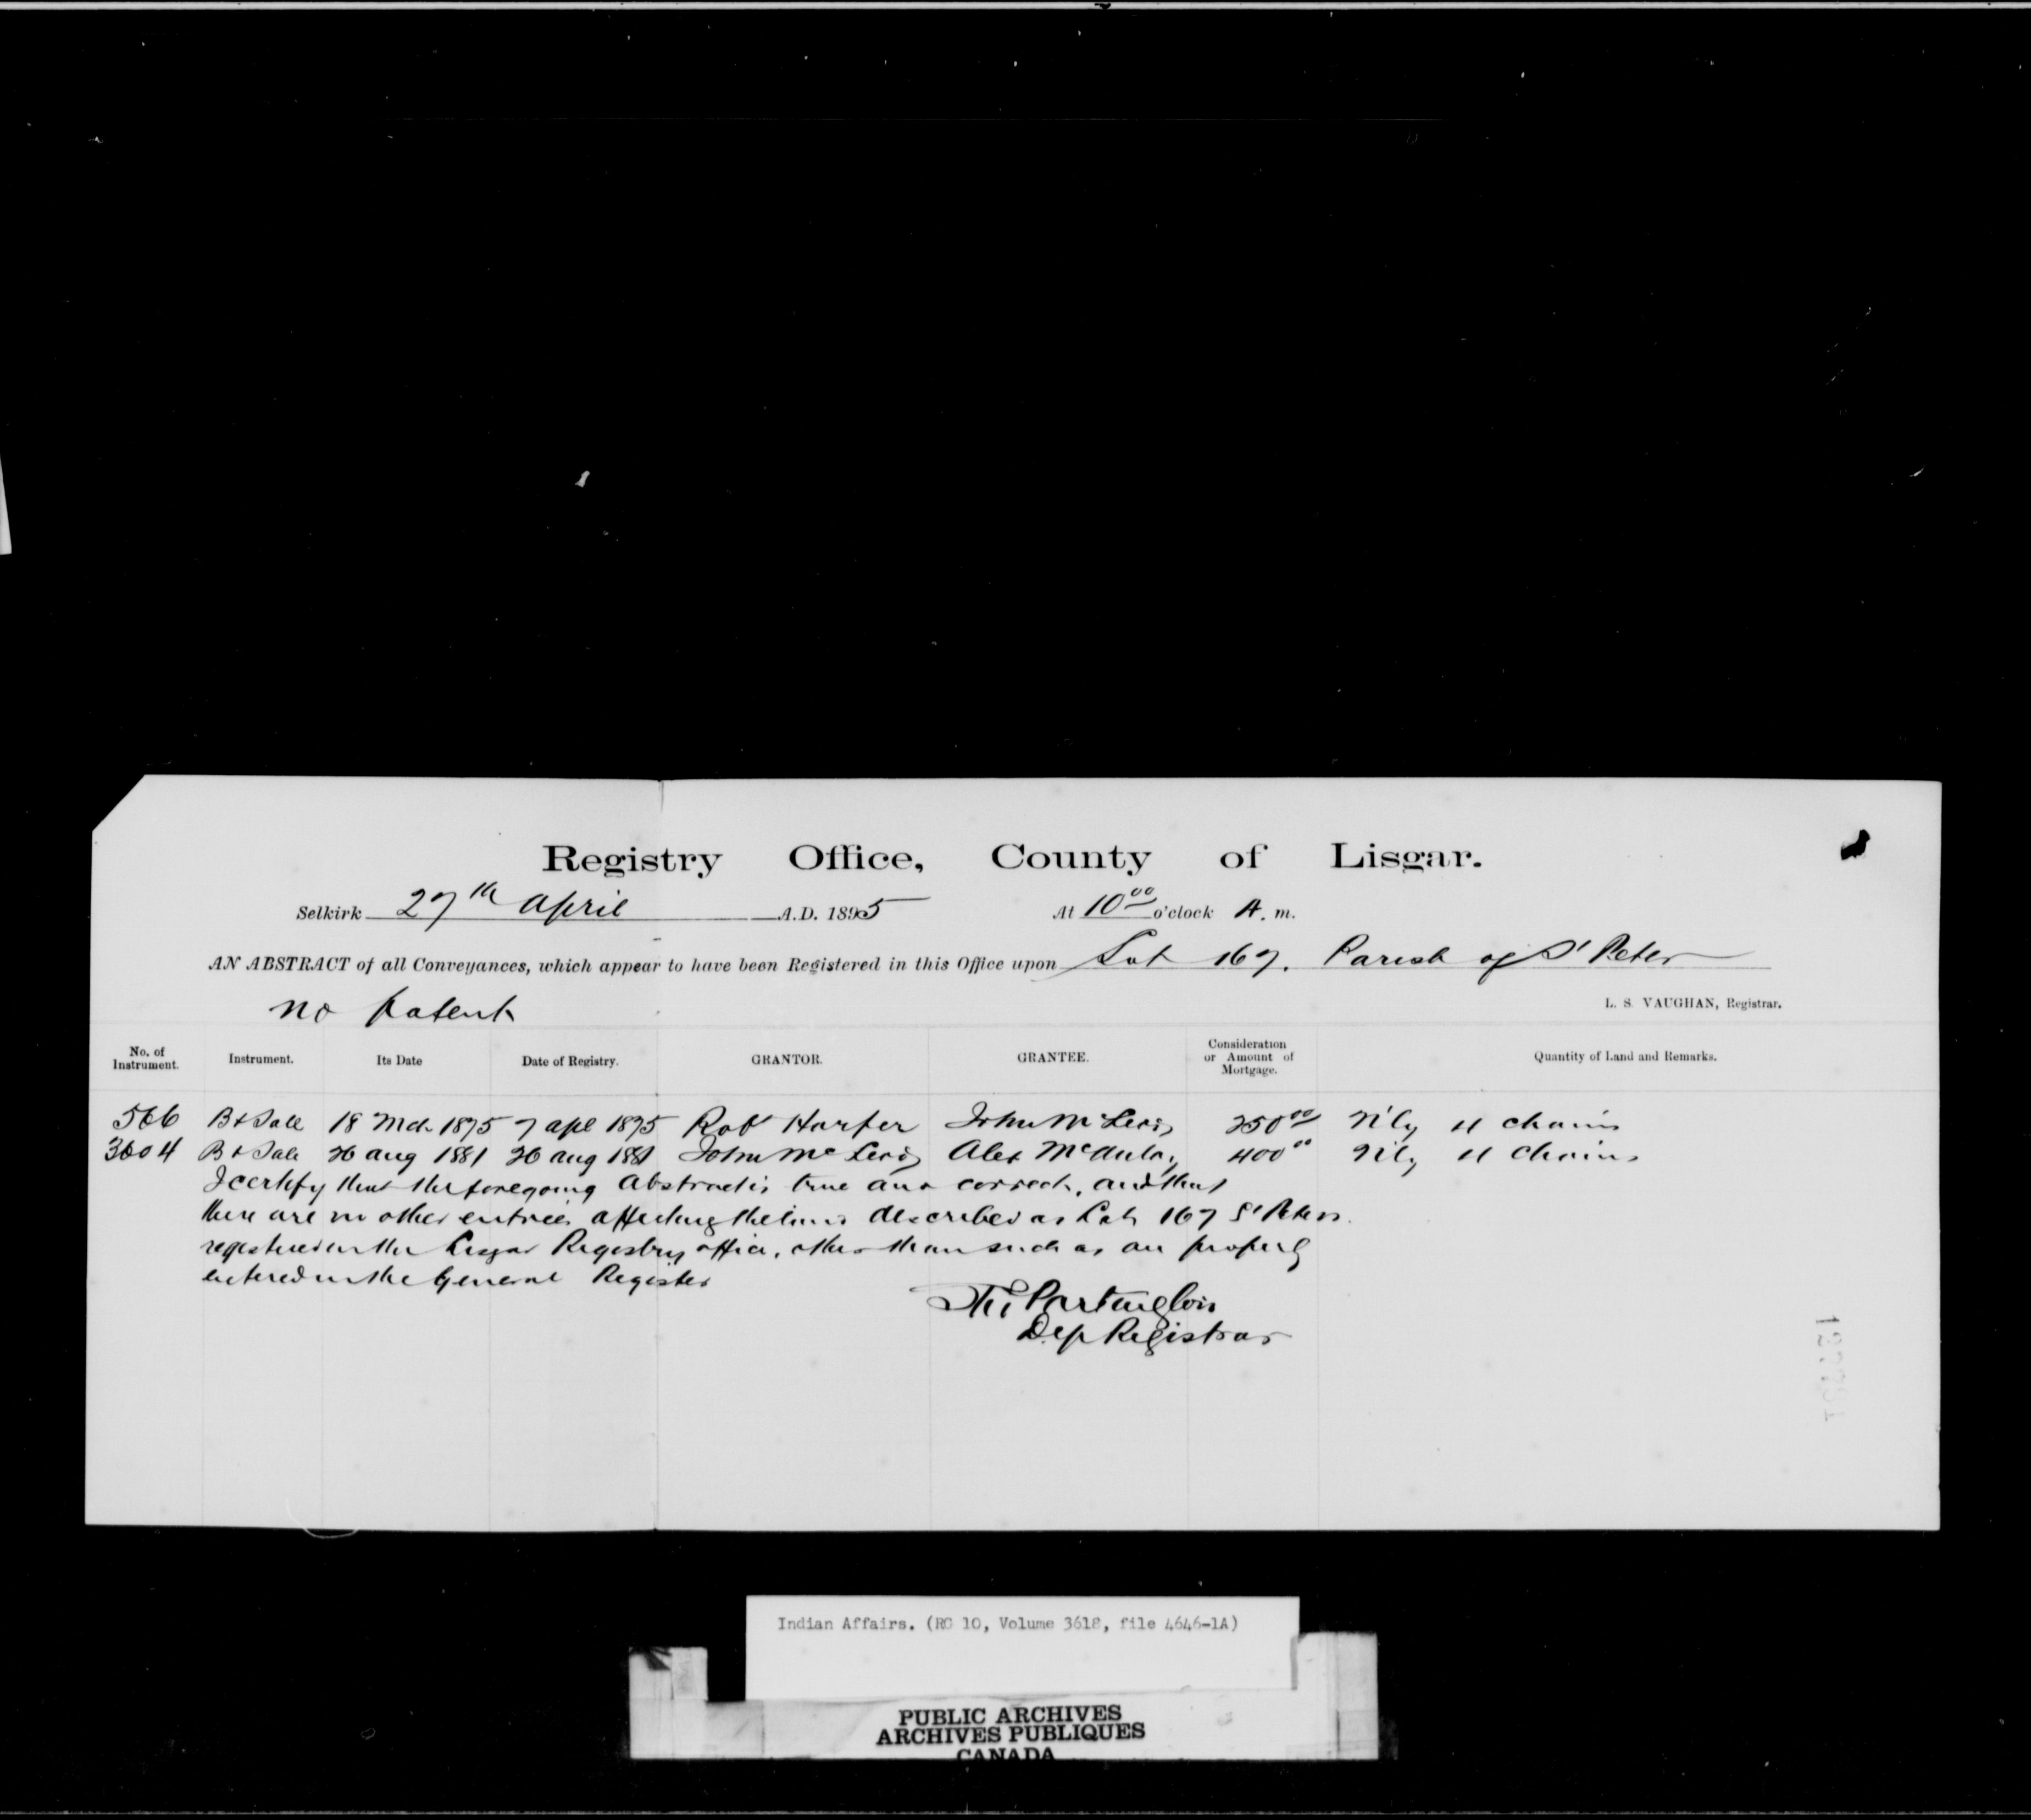 Registry Office, County of Lisgar.
Selkirk 27th April A.D. 1895 At 10 00 o'clock A. m.
AN ABSTRACT of all Conveyances, which appear to have been Registered in this Office upon Lot 167. Parish of St Peter
no patent
L. S. VAUGHAN, Registrar.
No. of Instrument. Instrument. Its Date Date of Registry. GRANTOR. GRANTEE. Consideration or Amount of Mortgage. Quantity of Land and Remarks.
566 B & Sale 18 Mch 1875 7 apl 1875 Robt Harper John McLeod 250 00 N'ly 11 chains
3604 B & Sale 26 aug 1881 26 aug 1881 John McLeod Alex McAulay 400 00 N'ly 11 chains
I certify that the foregoing abstract is true and correct, and that
there are no other entries affecting the land described as Lot 167 St Peters
registered in the Lisgar Registry office, other than such as are properly
entered in the General Register
Partington
Dep Registrar
Indian Affairs. (RG 10, Volume 3618, file 4646-1A)
PUBLIC ARCHIVES
ARCHIVES PUBLIQUES
CANADA